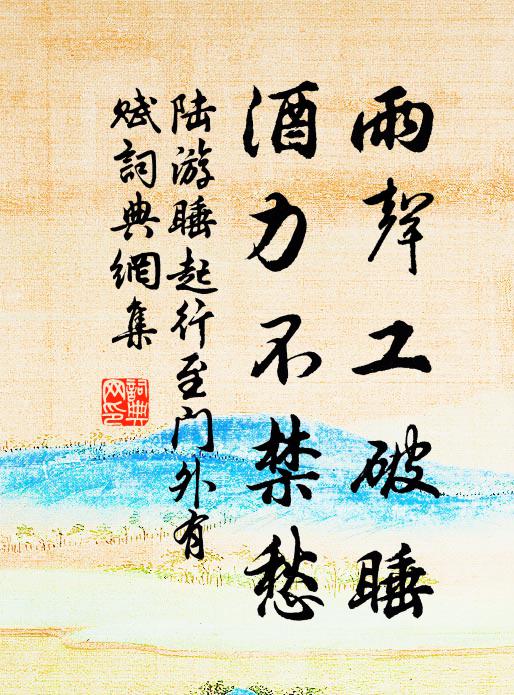 雨聲工破睡
酒力不禁愁
陸游睡起行至門外有
賦詞典網集
詞典网印